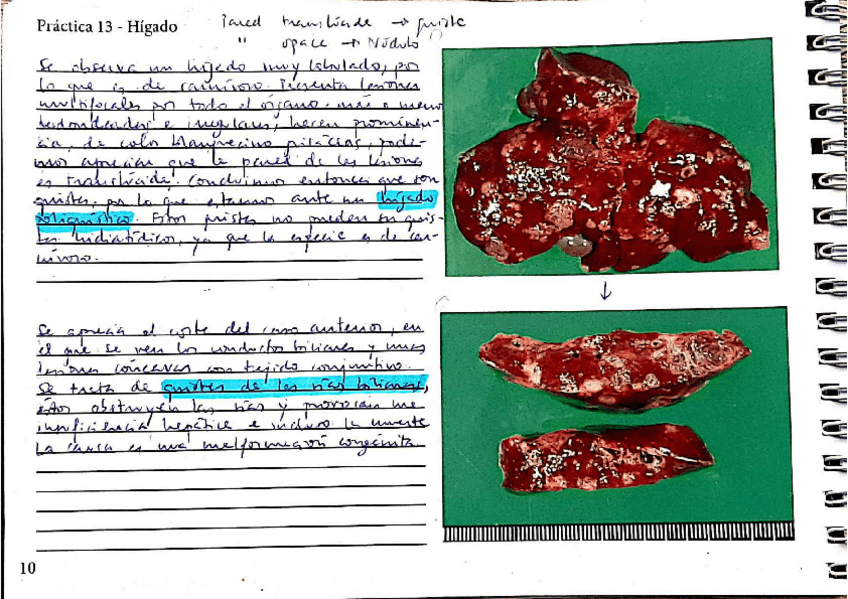 Práctica 13 - Hígado
Pared translúcida → quiste
" opaca → Nódulo
Se observa un hígado muy lobulado, por
lo que es de carnívoro. Presenta lesiones
multifocales por todo el órgano, más o menos
redondeadas e irregulares, hacen prominen-
cia, de color blanquecino grisáceas, pode-
mos apreciar que la pared de las lesiones
es translúcida. Concluimos entonces que son
quistes, por lo que estamos ante un hígado
poliquístico. Estos quistes no pueden ser quis-
tes hidiatídicos, ya que la especie es de car-
nívoro.
Se aprecia el corte del caso anterior, en
el que se ven los conductos biliares y unas
lesiones cóncavas con tejido conjuntivo.
Se trata de quistes de las vías biliares,
éstos obstruyen las vías y provocan una
insuficiencia hepática e incluso la muerte
La causa es una malformación congénita.
10